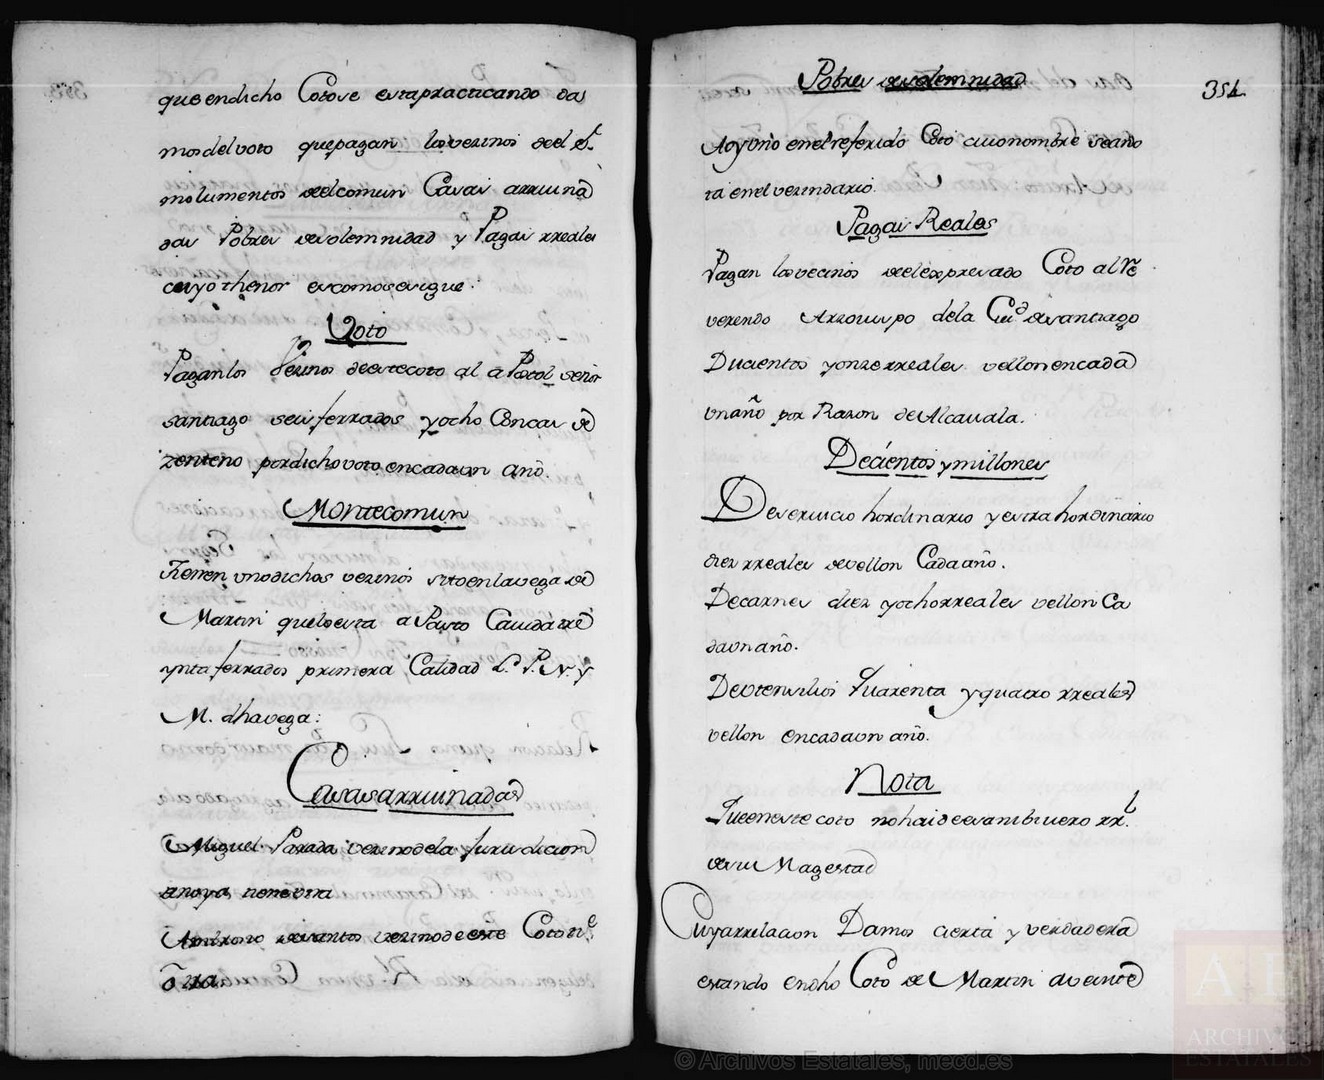 que en dicho Coto se esta practicando da
mos del voto que pagan los vezinos de el
molumentos de el comun Casas arruina
das Pobres de solemnidad y Pagas rreales
cuyo thenor es como se sigue:
Voto
Pagan los Vezinos de este coto al Señor
santiago seis ferrados y ocho Concas de
zenteno por dicho voto en cada un año.
Monte comun
tienen unos dichos vezinos sito en la vega de
Martin que lo esta a Pasto Cauida tre
ynta ferrados primera Calidad L. P. N. y
M. dha vega:
Casas arruinadas
Miguel Parada vezino de la Jurisdicion
una
Ambrosio de santos vezino de este Coto
una
Pobres de solemnidad
354
Ay uno en el referido Coto cuio nombre se ano
ta en el vezindario.
Pagas Reales
Pagan los vecinos de el expresado Coto al Re
verendo Arzouispo de la Ciud de santiago
Ducientos y onze rreales vellon en cada
un año por Razon de Alcauala.
Decientos y millones
De seruicio hordinario y extrahordinario
diez rreales de vellon Cada año.
De carnes diez y ocho rreales vellon Ca
da un año.
De utensilios quarenta y quatro rreales
vellon en cada un año.
Nota
Que en este coto no hai
de su Magestad
Cuya rrelacion Damos cierta y verdadera
estando en dho Coto de Martin a veinte
ARCHIVOS
ESTATALES
© Archivos Estatales, mecd.es